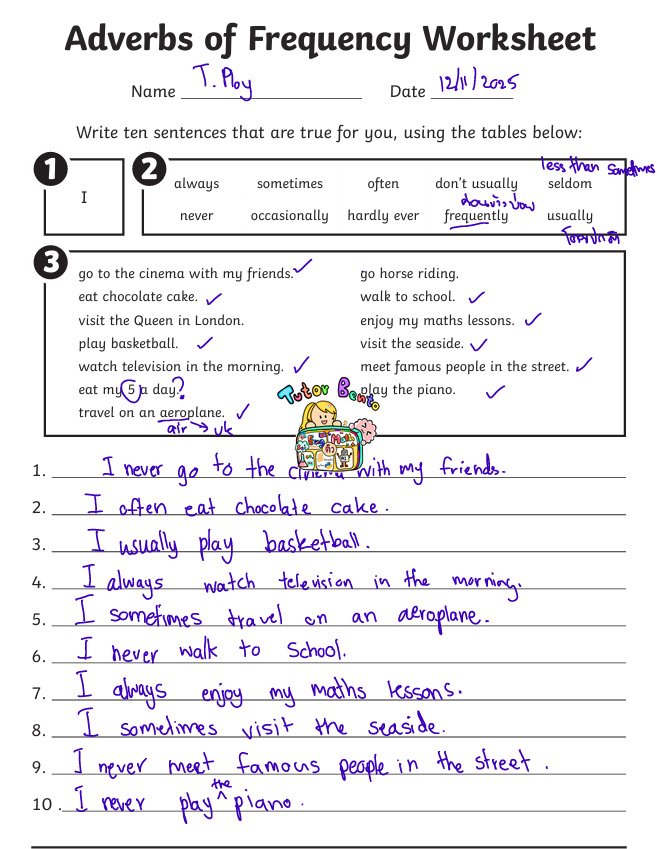 Adverbs of Frequency Worksheet
Name T. Ploy Date 12/11/2025
Write ten sentences that are true for you, using the tables below:
1
I
2
less than sometimes
always sometimes often don't usually seldom
never occasionally hardly ever frequently usually
3
go to the cinema with my friends. ✓
eat chocolate cake. ✓
visit the Queen in London.
play basketball. ✓
watch television in the morning. ✓
eat my 5 a day. ?
travel on an aeroplane. ✓
air → uk
go horse riding.
walk to school. ✓
enjoy my maths lessons. ✓
visit the seaside. ✓
meet famous people in the street. ✓
play the piano. ✓
Tutor Bento
1. I never go to the cinema with my friends.
2. I often eat chocolate cake.
3. I usually play basketball.
4. I always watch television in the morning.
5. I sometimes travel on an aeroplane.
6. I never walk to school.
7. I always enjoy my maths lessons.
8. I sometimes visit the seaside.
9. I never meet famous people in the street.
10. I never play the piano.